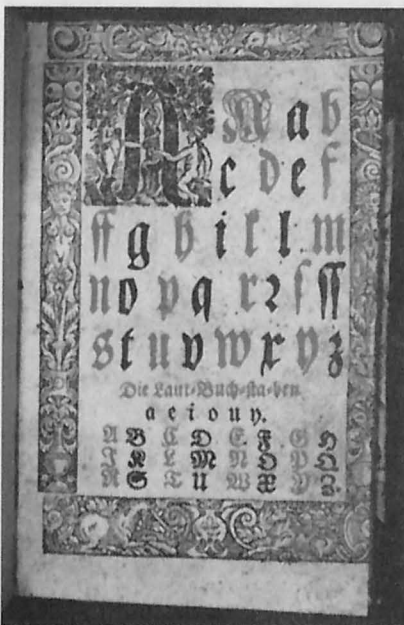 A A a b
c d e f
ff g h i k l m
n o p q r ꝛ ſ ſſ
s t u v w x y z
Die Laut-Buch-ſta-ben
a e i o u y.
A B C D E F G H
J K L M N O P Q
R S T U W X Y Z.